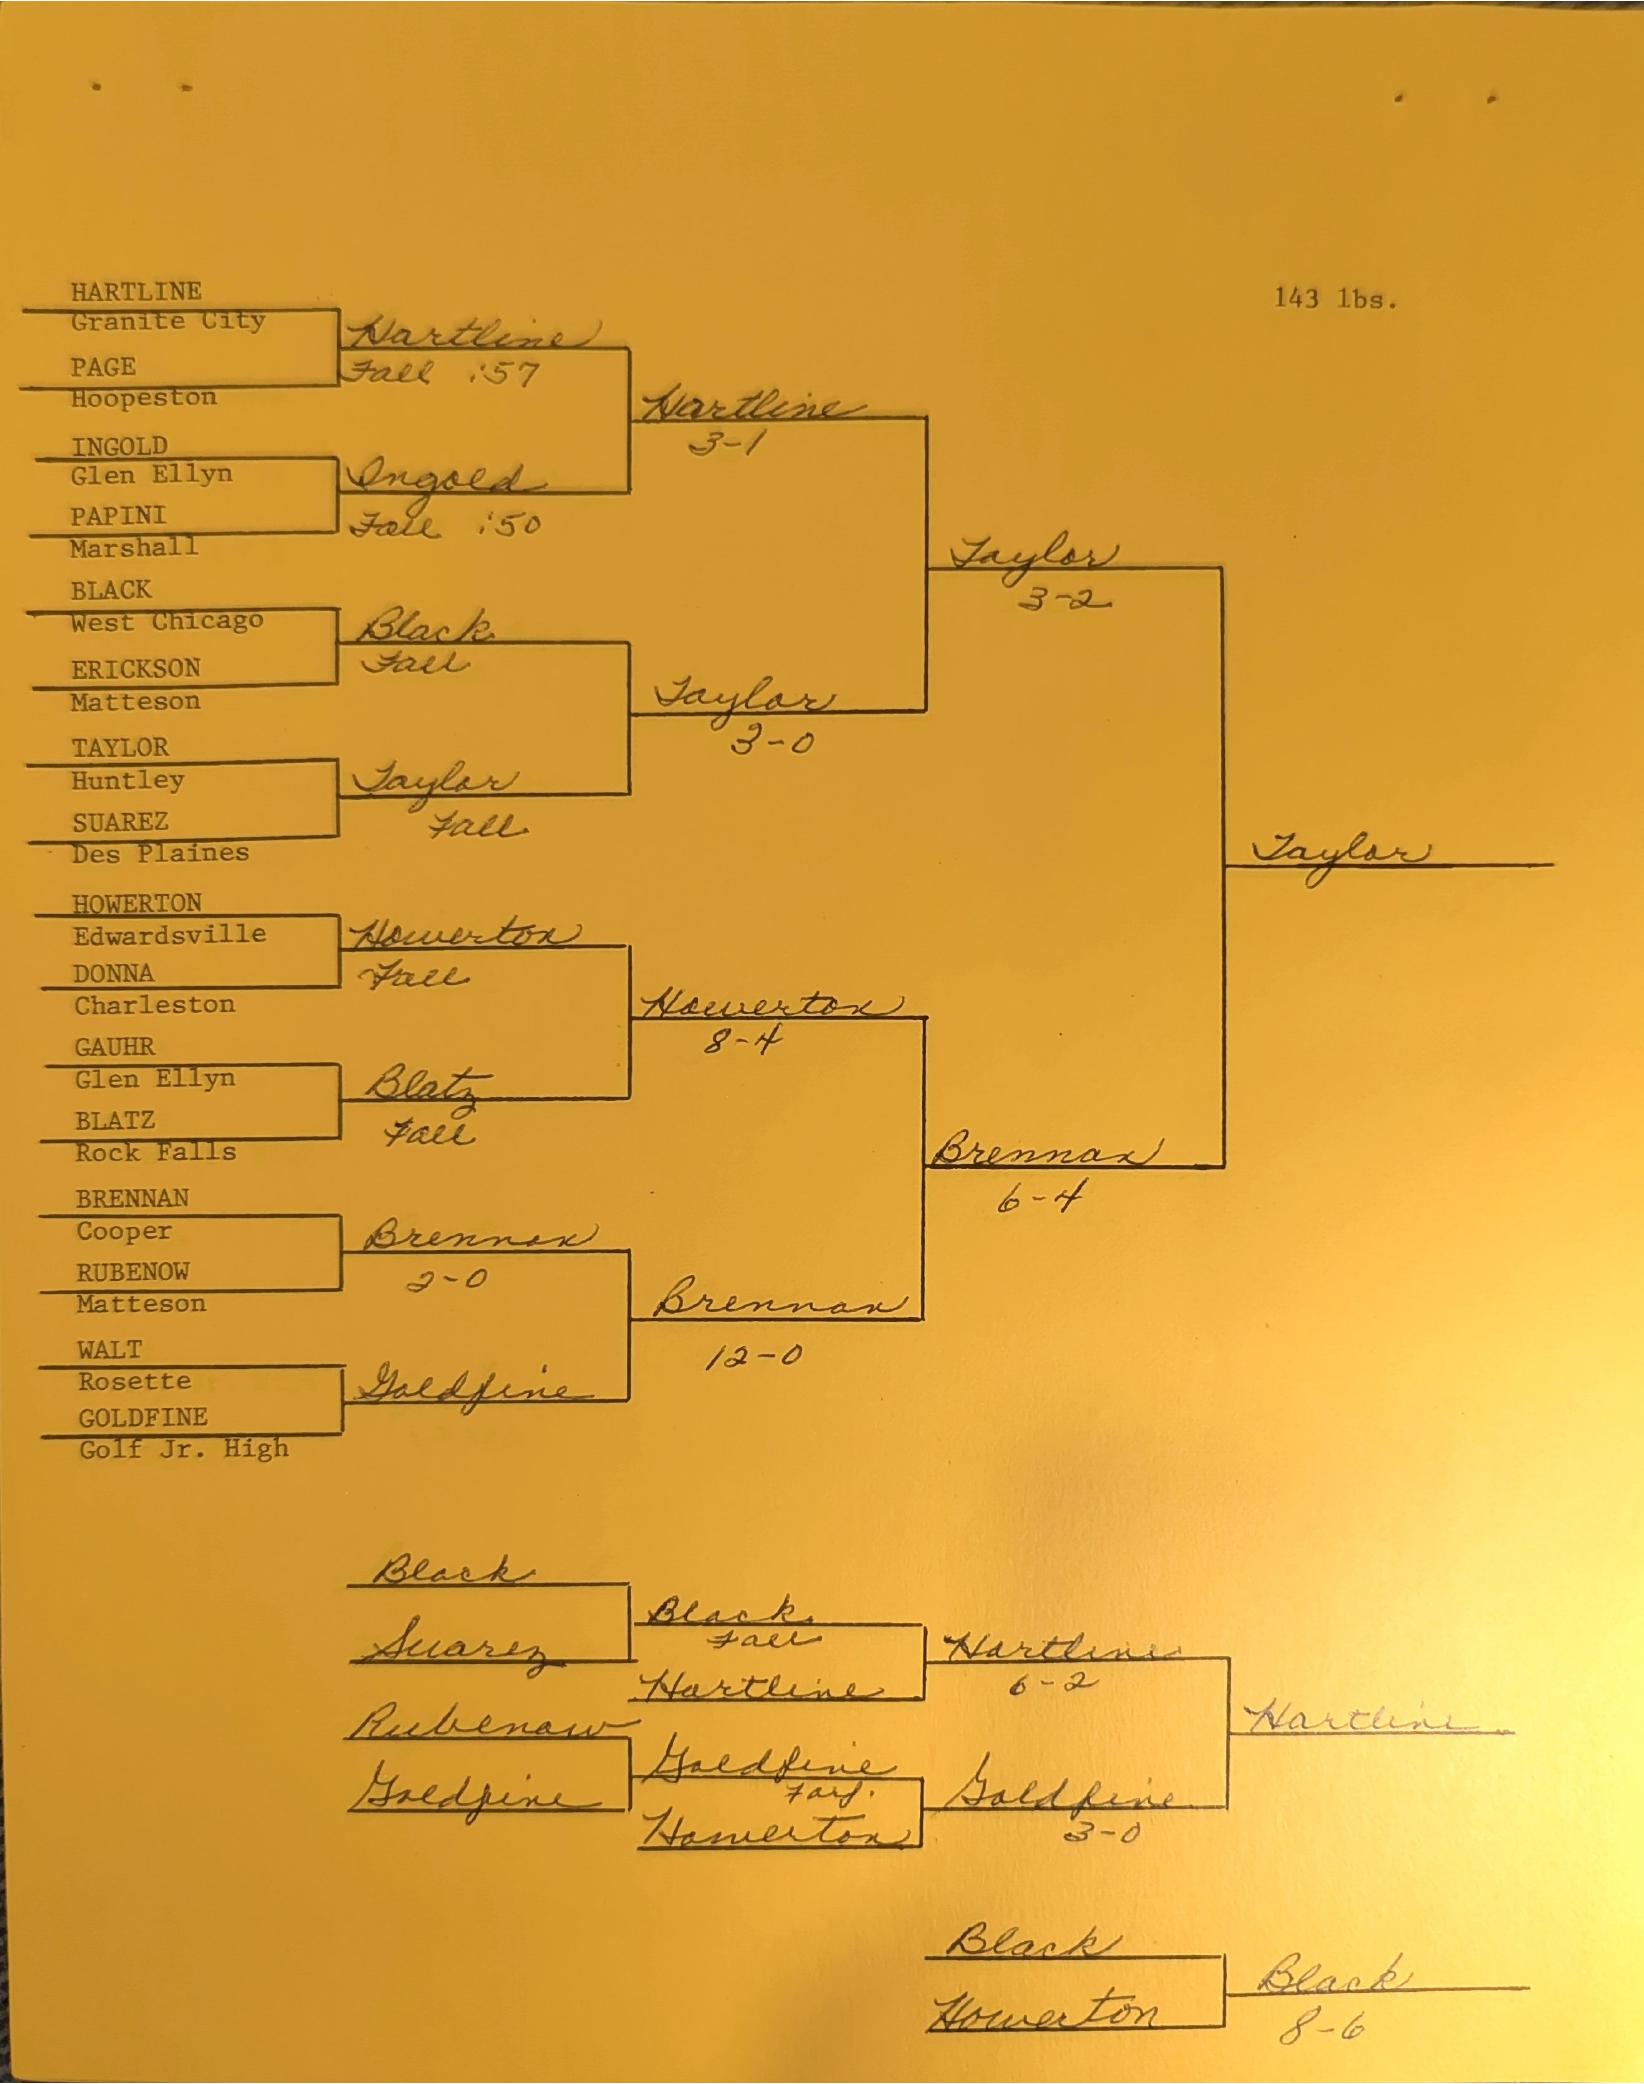 143 lbs.
HARTLINE
Granite City
PAGE
Hoopeston
INGOLD
Glen Ellyn
PAPINI
Marshall
BLACK
West Chicago
ERICKSON
Matteson
TAYLOR
Huntley
SUAREZ
Des Plaines
HOWERTON
Edwardsville
DONNA
Charleston
GAUHR
Glen Ellyn
BLATZ
Rock Falls
BRENNAN
Cooper
RUBENOW
Matteson
WALT
Rosette
GOLDFINE
Golf Jr. High
Hartline
Fall :57
Ingold
Fall :50
Black
Fall
Taylor
Fall
Howerton
Fall
Blatz
Fall
Brennan
2-0
Goldfine
Hartline
3-1
Taylor
3-0
Howerton
8-4
Brennan
12-0
Taylor
3-2
Brennan
6-4
Taylor
Black
Suarez
Rubenow
Goldfine
Black
Fall
Hartline
Goldfine
Forf.
Howerton
Hartline
6-2
Goldfine
3-0
Hartline
Black
Howerton
Black
8-6